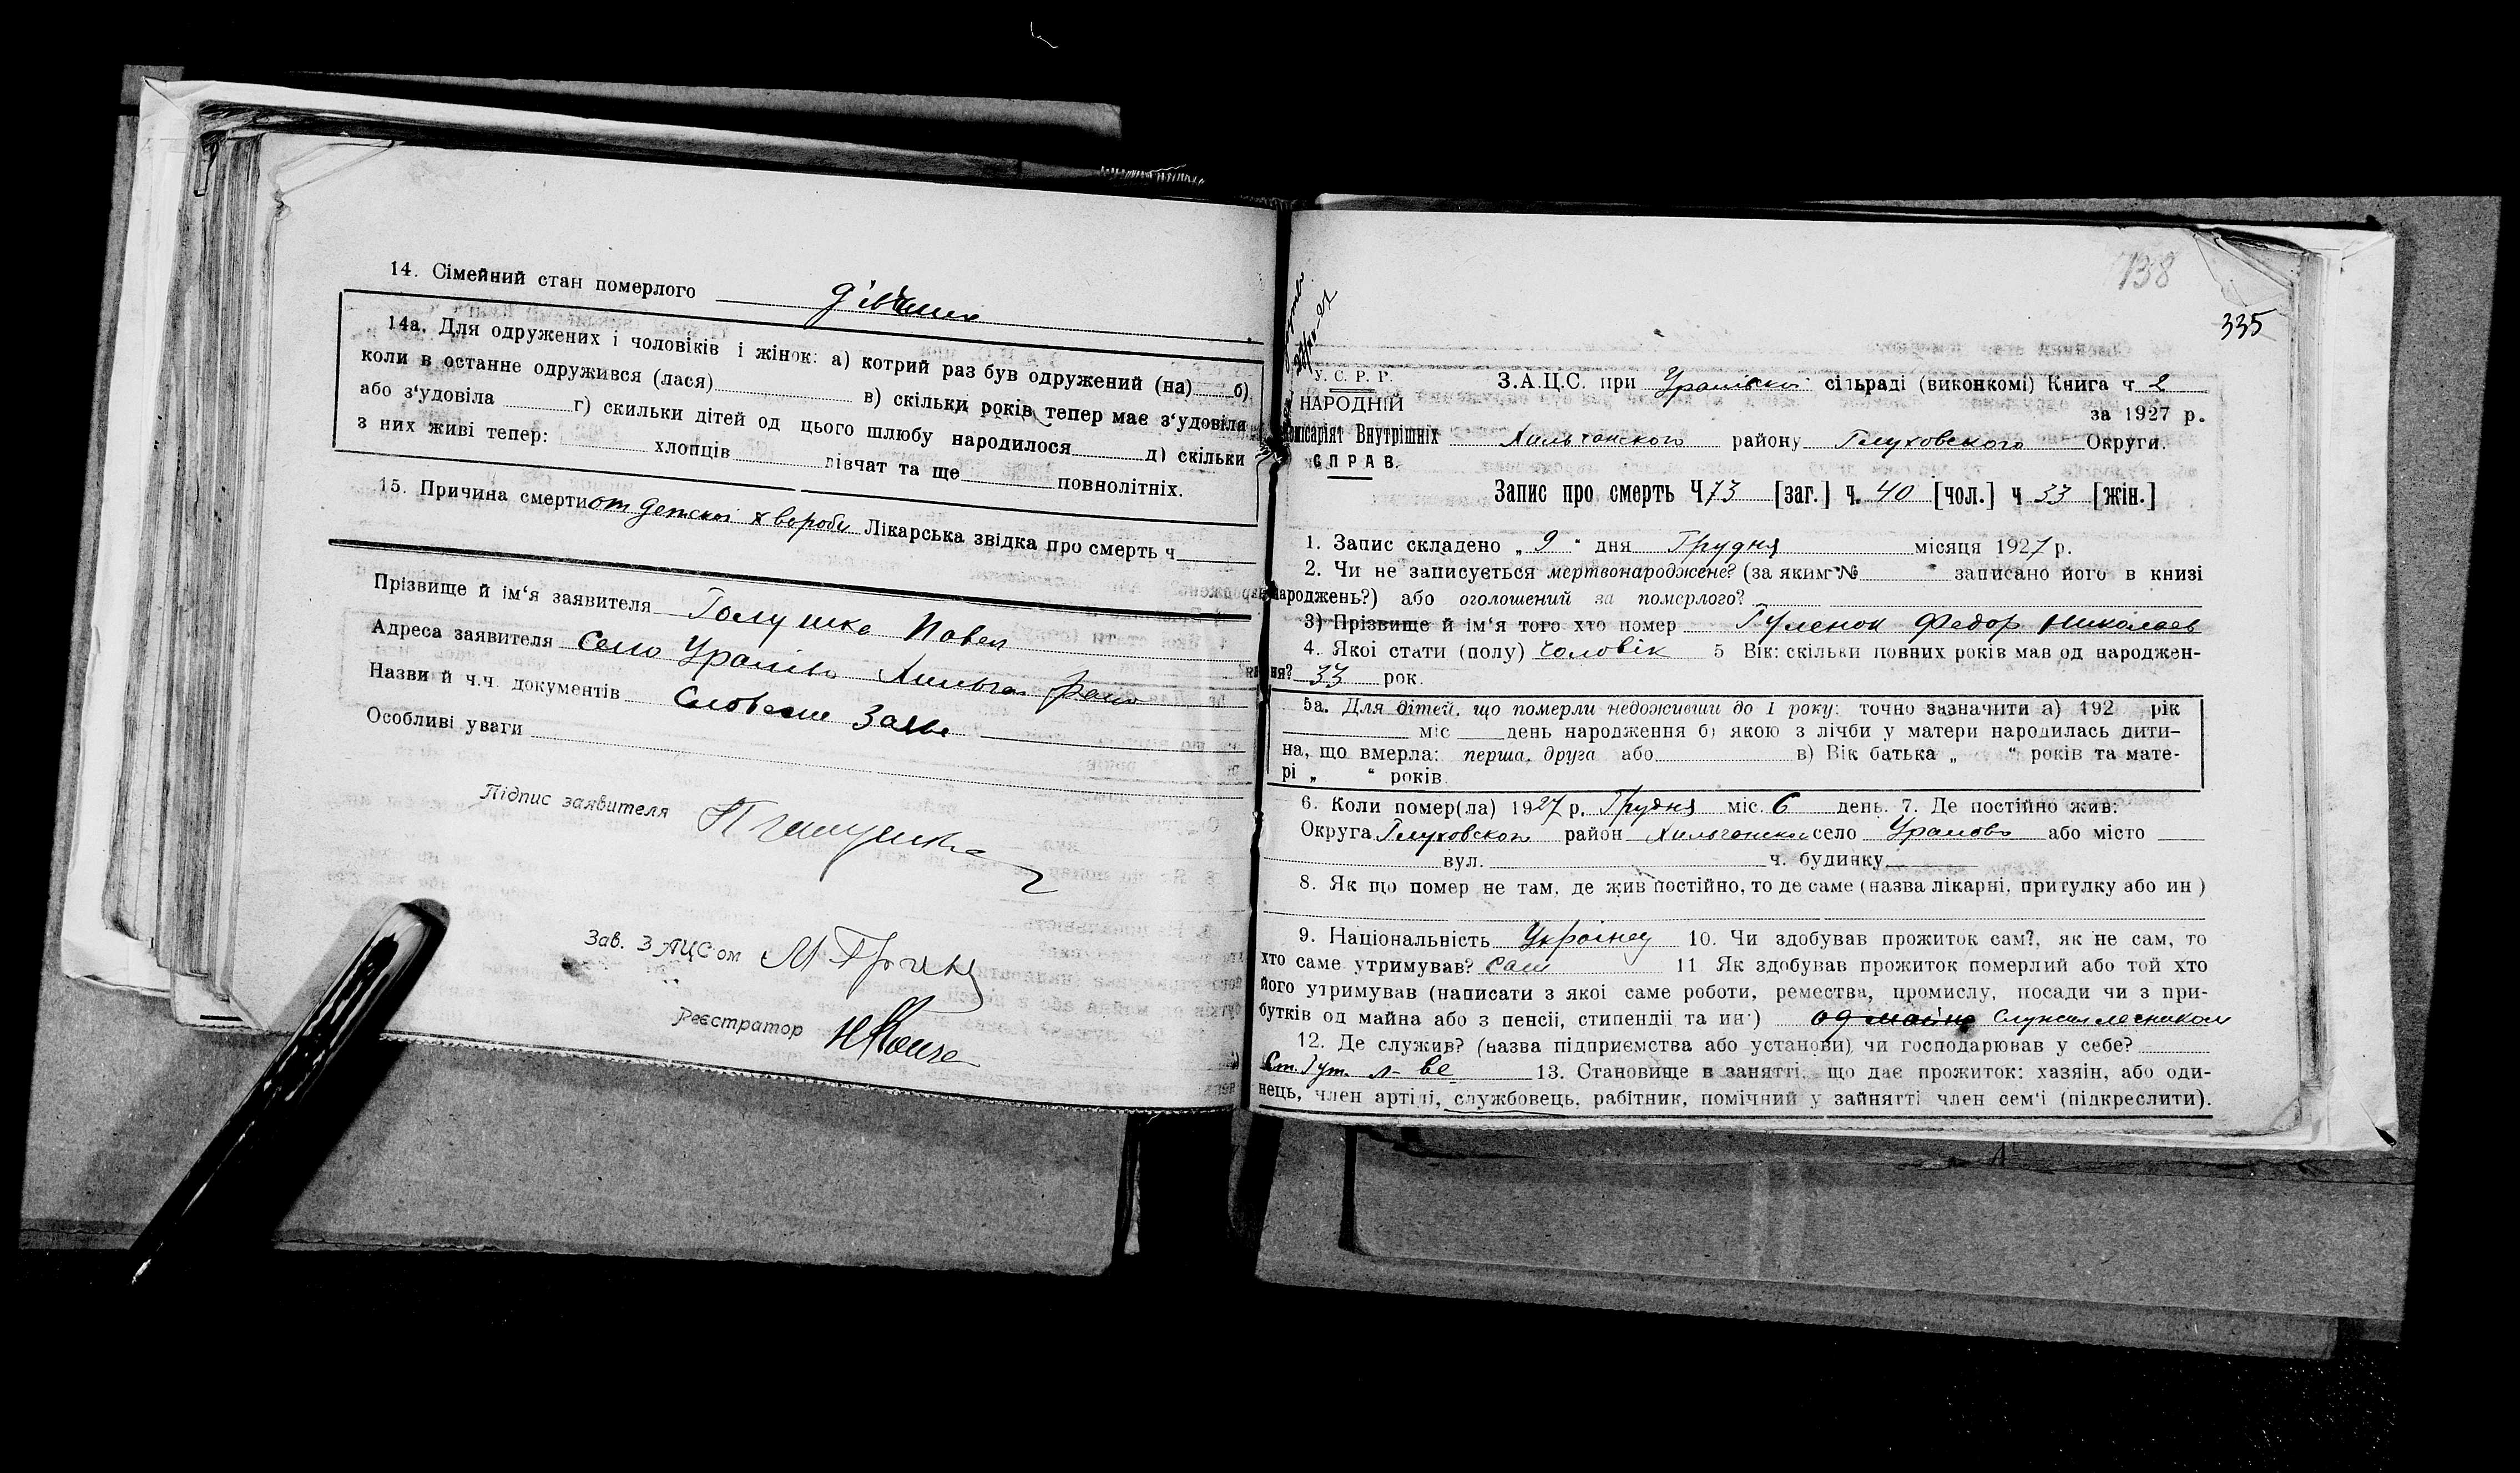 14. Сімейний стан померлого
14а. Для одружених і чоловіків і жінок: а) котрий раз був одружений (на) б)
коли в останне одружився (лася) в) скільки років тепер має з'удовіла
або з'удовіла г) скильки дітей од цього шлюбу народилося д) скільки
з них живі тепер: хлопців дівчат та ще повнолітніх.
15. Причина смерти от детскої хвороби Лікарська звідка про смерть ч
Прізвище й ім'я заявителя Голушка Павел
Адреса заявителя Село
Назви й ч.ч. документів Словесне Заяв.
Особливі уваги
Підпис заявителя
Зав. ЗАЦСом
Реєстратор
738
335
У. С. Р. Р.
НАРОДНІЙ
Комісаріят Внутрішніх
СПРАВ.
З.А.Ц.С. при сільраді (виконкомі) Книга ч 2
за 1927 р.
району Глуховского Округи.
Запис про смерть Ч 73 [заг.] ч. 40 [чол.] ч 33 [жін.]
1. Запис складено „ 9 " дня Грудня місяця 1927 р.
2. Чи не записується мертвонароджене? (за яким № записано його в книзі
народжень?) або оголошений за померлого?
3) Прізвище й ім'я того хто помер Гуленок Федор Николаев
4. Якої стати (полу) Чоловік 5 Вік: скільки повних років мав од народжен-
ня? 33 рок.
5а. Для дітей, що померли недоживши до 1 року: точно зазначити а) 192 рік
міс день народження б) якою з лічби у матери народилась дити-
на, що вмерла: перша, друга або в) Вік батька „ " років та мате-
рі „ " років
6. Коли помер(ла) 1927 р. Грудня міс. 6 день. 7. Де постійно жив:
Округа Глуховского район село або місто
вул. ч. будинку
8. Як що помер не там, де жив постійно, то де саме (назва лікарні, притулку або ин )
9. Національність Українец 10. Чи здобував прожиток сам?, як не сам, то
хто саме утримував? Сам 11 Як здобував прожиток померлий або той хто
його утримував (написати з якої саме роботи, ремества, промислу, посади чи з при-
бутків од майна або з пенсії, стипендії та ин ) од майна служил лесником
12. Де служив? (назва підприємства або установи) чи господарював у себе?
13. Становище в занятті, що дає прожиток: хазяін, або оди-
нець, член артілі, службовець, рабітник, помічний у зайнятті член сем'і (підкреслити).